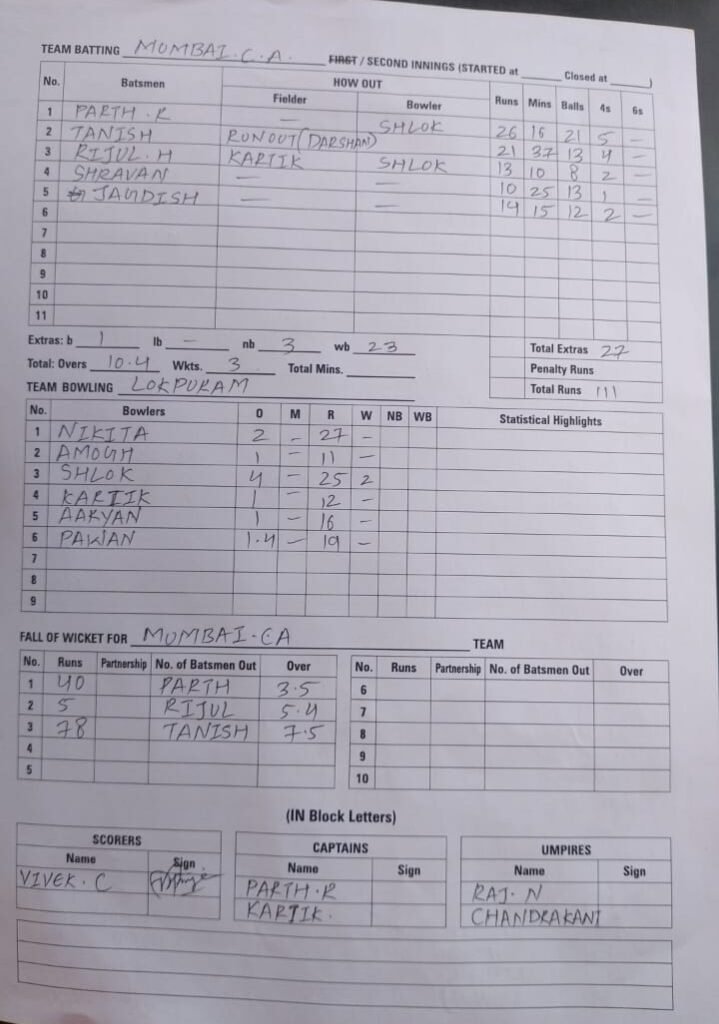 TEAM BATTING MUMBAI.C.A. FIRST / SECOND INNINGS (STARTED at ______ Closed at ______)
No. Batsmen HOW OUT Runs Mins Balls 4s 6s
Fielder Bowler
1 PARTH.R — SHLOK 26 16 21 5 —
2 TANISH RUNOUT (DARSHAN) 21 37 13 4 —
3 RIJUL.H KARTIK SHLOK 13 10 8 2 —
4 SHRAVAN — — 10 25 13 1 —
5 JAGDISH — — 14 15 12 2 —
6
7
8
9
10
11
Extras: b 1 lb — nb 3 wb 23 Total Extras 27
Total: Overs 10.4 Wkts. 3 Total Mins. Penalty Runs
TEAM BOWLING LOKPURAM Total Runs 111
No. Bowlers O M R W NB WB Statistical Highlights
1 NIKITA 2 — 27 —
2 AMOGH 1 — 11 —
3 SHLOK 4 — 25 2
4 KARTIK 1 — 12 —
5 AARYAN 1 — 16 —
6 PAWAN 1.4 — 19 —
7
8
9
FALL OF WICKET FOR MUMBAI.CA TEAM
No. Runs Partnership No. of Batsmen Out Over No. Runs Partnership No. of Batsmen Out Over
1 40 PARTH 3.5 6
2 5 RIJUL 5.4 7
3 78 TANISH 7.5 8
4 9
5 10
(IN Block Letters)
SCORERS CAPTAINS UMPIRES
Name Sign Name Sign Name Sign
VIVEK.C PARTH.R RAJ.N
KARTIK. CHANDRAKANT